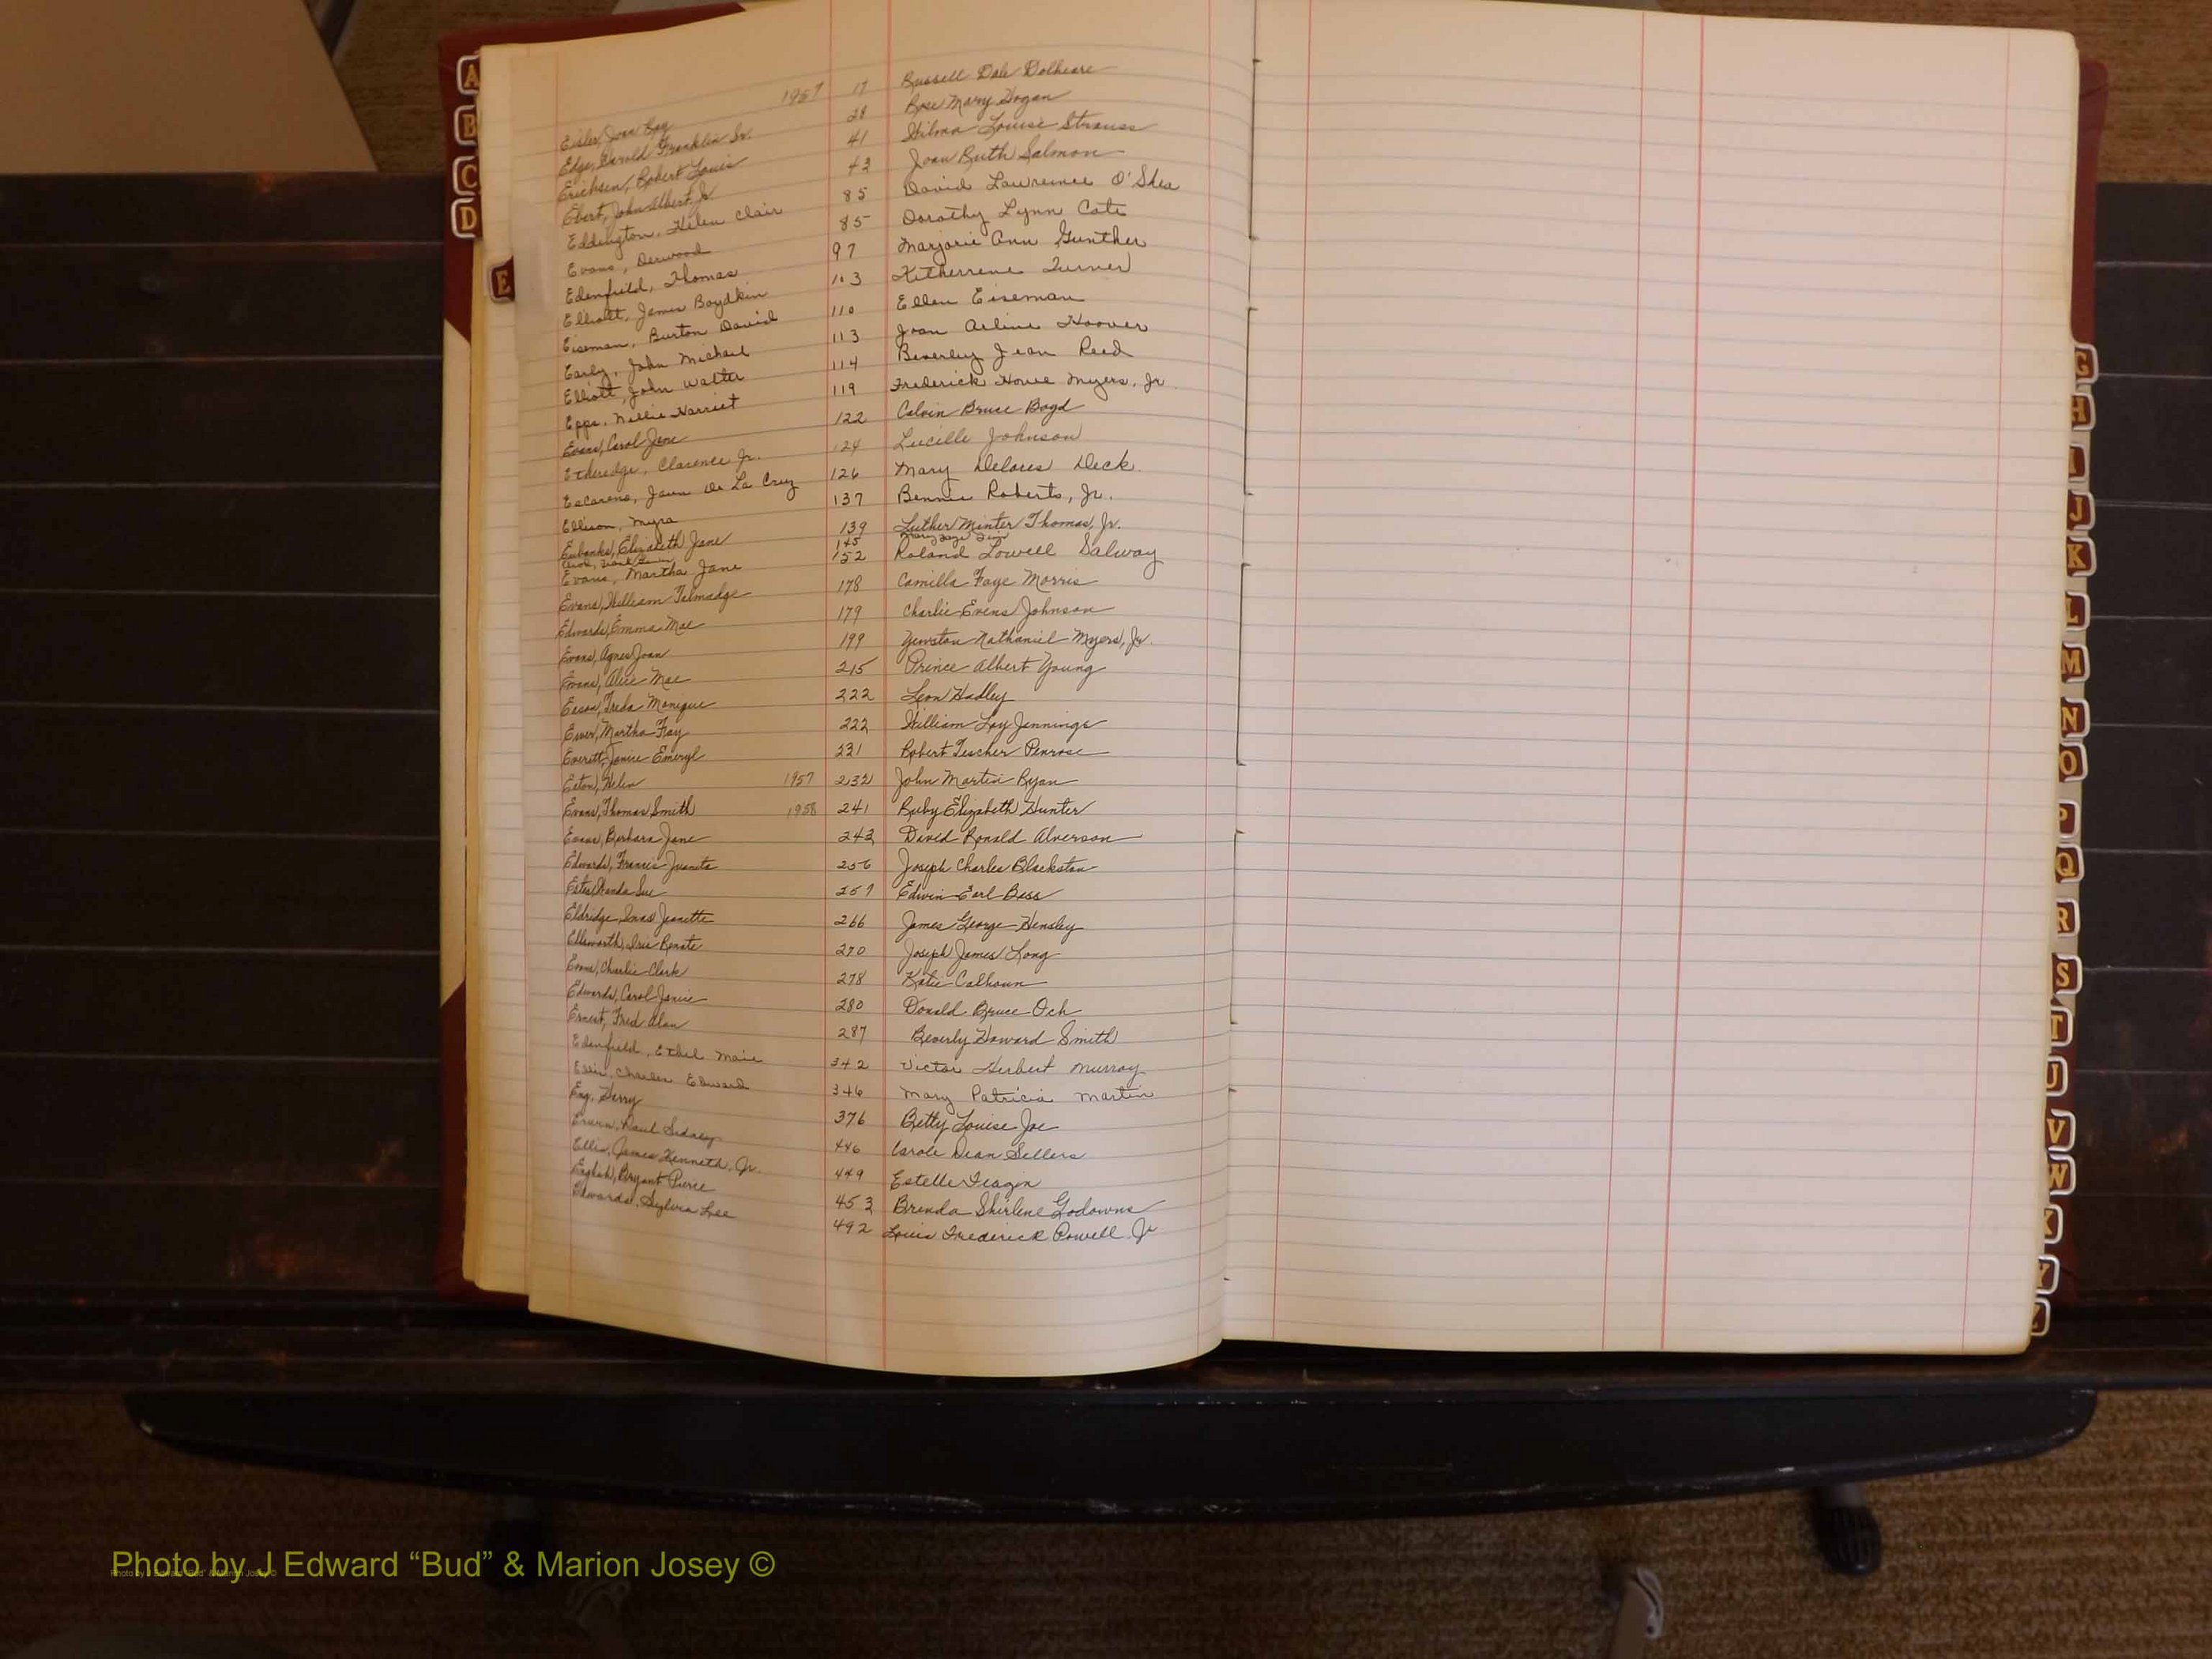 A
B
C
D
E
Eisler, Joan Kay 1957 17 Russell Dale Dolheare
Edge, Harold Franklin Sr. 28 Rose Mary Hogan
Erichsen, Robert Louis 41 Wilma Louise Strauss
Ebert, John Albert Jr. 43 Joan Ruth Salmon
Eddington, Helen Clair 85 David Lawrence O'Shea
Evans, Derwood 85 Dorothy Lynn Cate
Edenfield, Thomas 97 Marjorie Ann Gunther
Elliott, James Boydkin 103 Turner
Eiseman, Burton David 110 Ellen Eiseman
Early, John Michael 113 Joan Arline Hoover
Elliott, John Walter 114 Beverley Jean Reed
Epps, Nellie Harriet 119 Frederick Howe Myers, Jr.
Evans, Carol Jane 122 Calvin Bruce Boyd
Etheredge, Clarence Jr. 124 Lucille Johnson
Escareno, Juan De La Cruz 126 Mary Delores Deck
Ellison, Myra 137 Bennie Roberts, Jr.
Eubanks, Elizabeth Jane 139 Luther Minter Thomas, Jr.
145
Evans, Martha Jane 152 Roland Lowell Salway
Evans, William Talmadge 178 Camilla Faye Morris
Edwards, Emma Mae 179 Charlie Evens Johnson
Evans, Agnes Joan 199 Nathaniel Myers, Jr.
Evans, Alice Mae 215 Prince Albert Young
Eason, Freda Monique 222 Leon Hadley
Ewer, Martha Fay 222 William Loy Jennings
Everett, Janice Emeryl 231 Robert Tescher Penrose
Eaton, Helen 1957 232 John Martin Ryan
Evans, Thomas Smith 1958 241 Ruby Elizabeth Hunter
Evans, Barbara Jane 243 David Ronald Alverson
Edwards, Francis Juanita 256 Joseph Charles Blackston
Estes, Wanda Sue 257 Edwin Earl Bass
Eldridge, Jeanette 266 James George Hensley
Ellsworth, Iris Renate 270 Joseph James Long
Evans, Charlie Clark 278 Katie Calhoun
Edwards, Carol Janice 280 Donald Bruce Och
Ernest, Fred Alan 287 Beverly Howard Smith
Edenfield, Ethel Maie 342 Victor Herbert Murray
Charles Edward 346 Mary Patricia Martin
Eng, Harry 376 Betty Louise Joe
Paul Sidney 446 Carole Dean Sellers
Ellis, James Kenneth, Jr. 449 Estelle Feagin
English, Bryant Pierce 453 Brenda Shirlene Godowns
Edwards, Sylvia Lee 492 Louis Frederick Powell Jr
G
H
I
J
K
L
M
N
O
P
Q
R
S
T
U
V
W
X
Y
Z
Photo by J Edward “Bud” & Marion Josey ©
Photo by J Edward “Bud” & Marion Josey ©